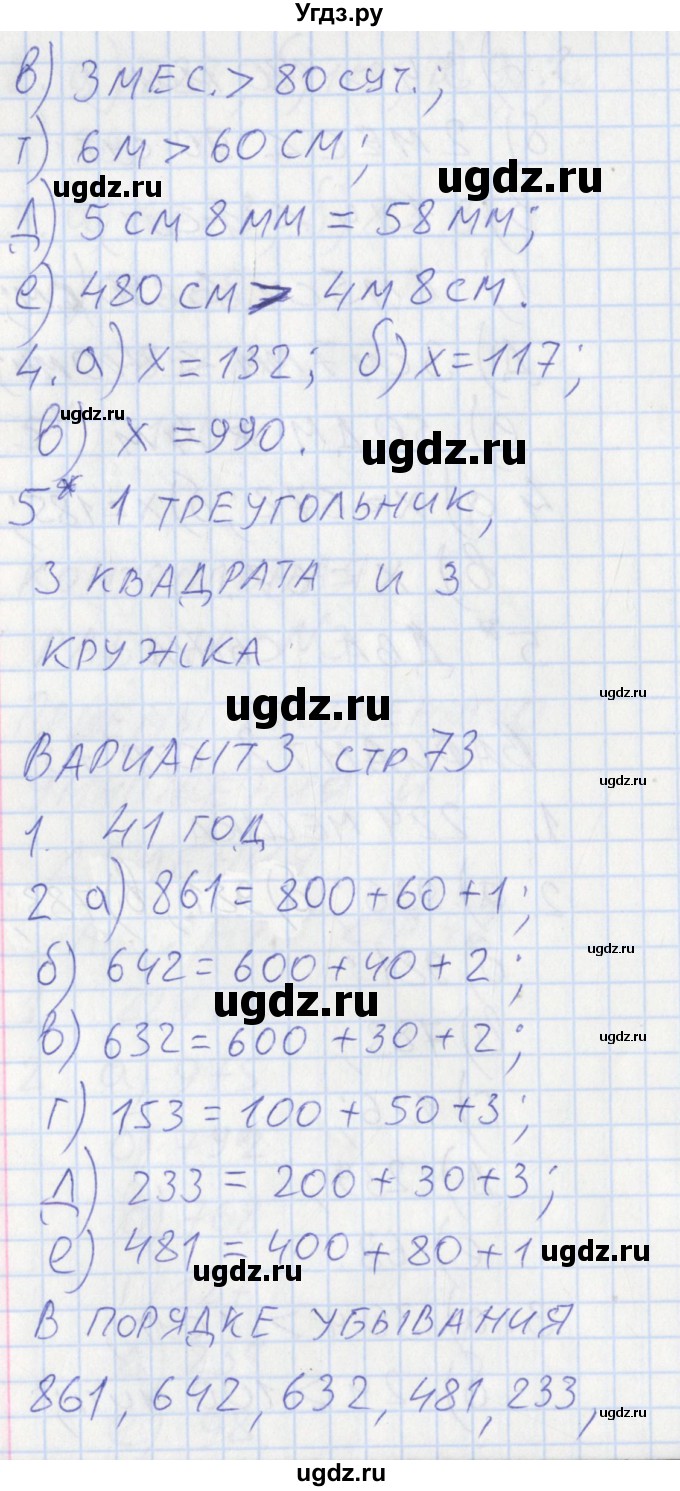 Угдз.ру
в) 3 МЕС. > 80 СУТ.;
г) 6 М > 60 СМ;
ugdz.ru
ugdz.ru
Д) 5 СМ 8 ММ = 58 ММ;
е) 480 СМ > 4 М 8 СМ.
4. а) X = 132; б) X = 117;
ugdz.ru
в) X = 990.
ugdz.ru
5* 1 ТРЕУГОЛЬНИК,
3 КВАДРАТА И 3
КРУЖКА
ugdz.ru
ugdz.ru
ВАРИАНТ 3 СТР 73
ugdz.ru
1. 41 ГОД
2 а) 861 = 800 + 60 + 1;
б) 642 = 600 + 40 + 2;
ugdz.ru
ugdz.ru
в) 632 = 600 + 30 + 2;
ugdz.ru
г) 153 = 100 + 50 + 3;
Д) 233 = 200 + 30 + 3;
е) 481 = 400 + 80 + 1
ugdz.ru
ugdz.ru
В ПОРЯДКЕ УБЫВАНИЯ
861, 642, 632, 481, 233,
ugdz.ru
ugdz.ru